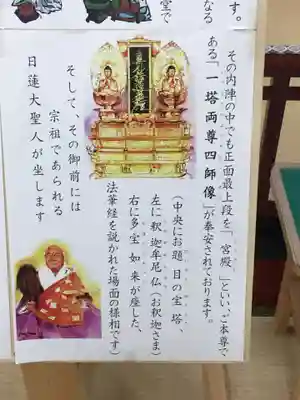 堂で
なる
す。
その内陣の中でも正面最上段を「宮殿」といい、ご本尊で
ある「一塔両尊四師像」が奉安されております。
（中央にお題目の宝塔、
左に釈迦牟尼仏（お釈迦さま）
右に多宝如来が座した、
法華経を説かれた場面の様相です）
そして、その御前には
宗祖であられる
日蓮大聖人が坐します